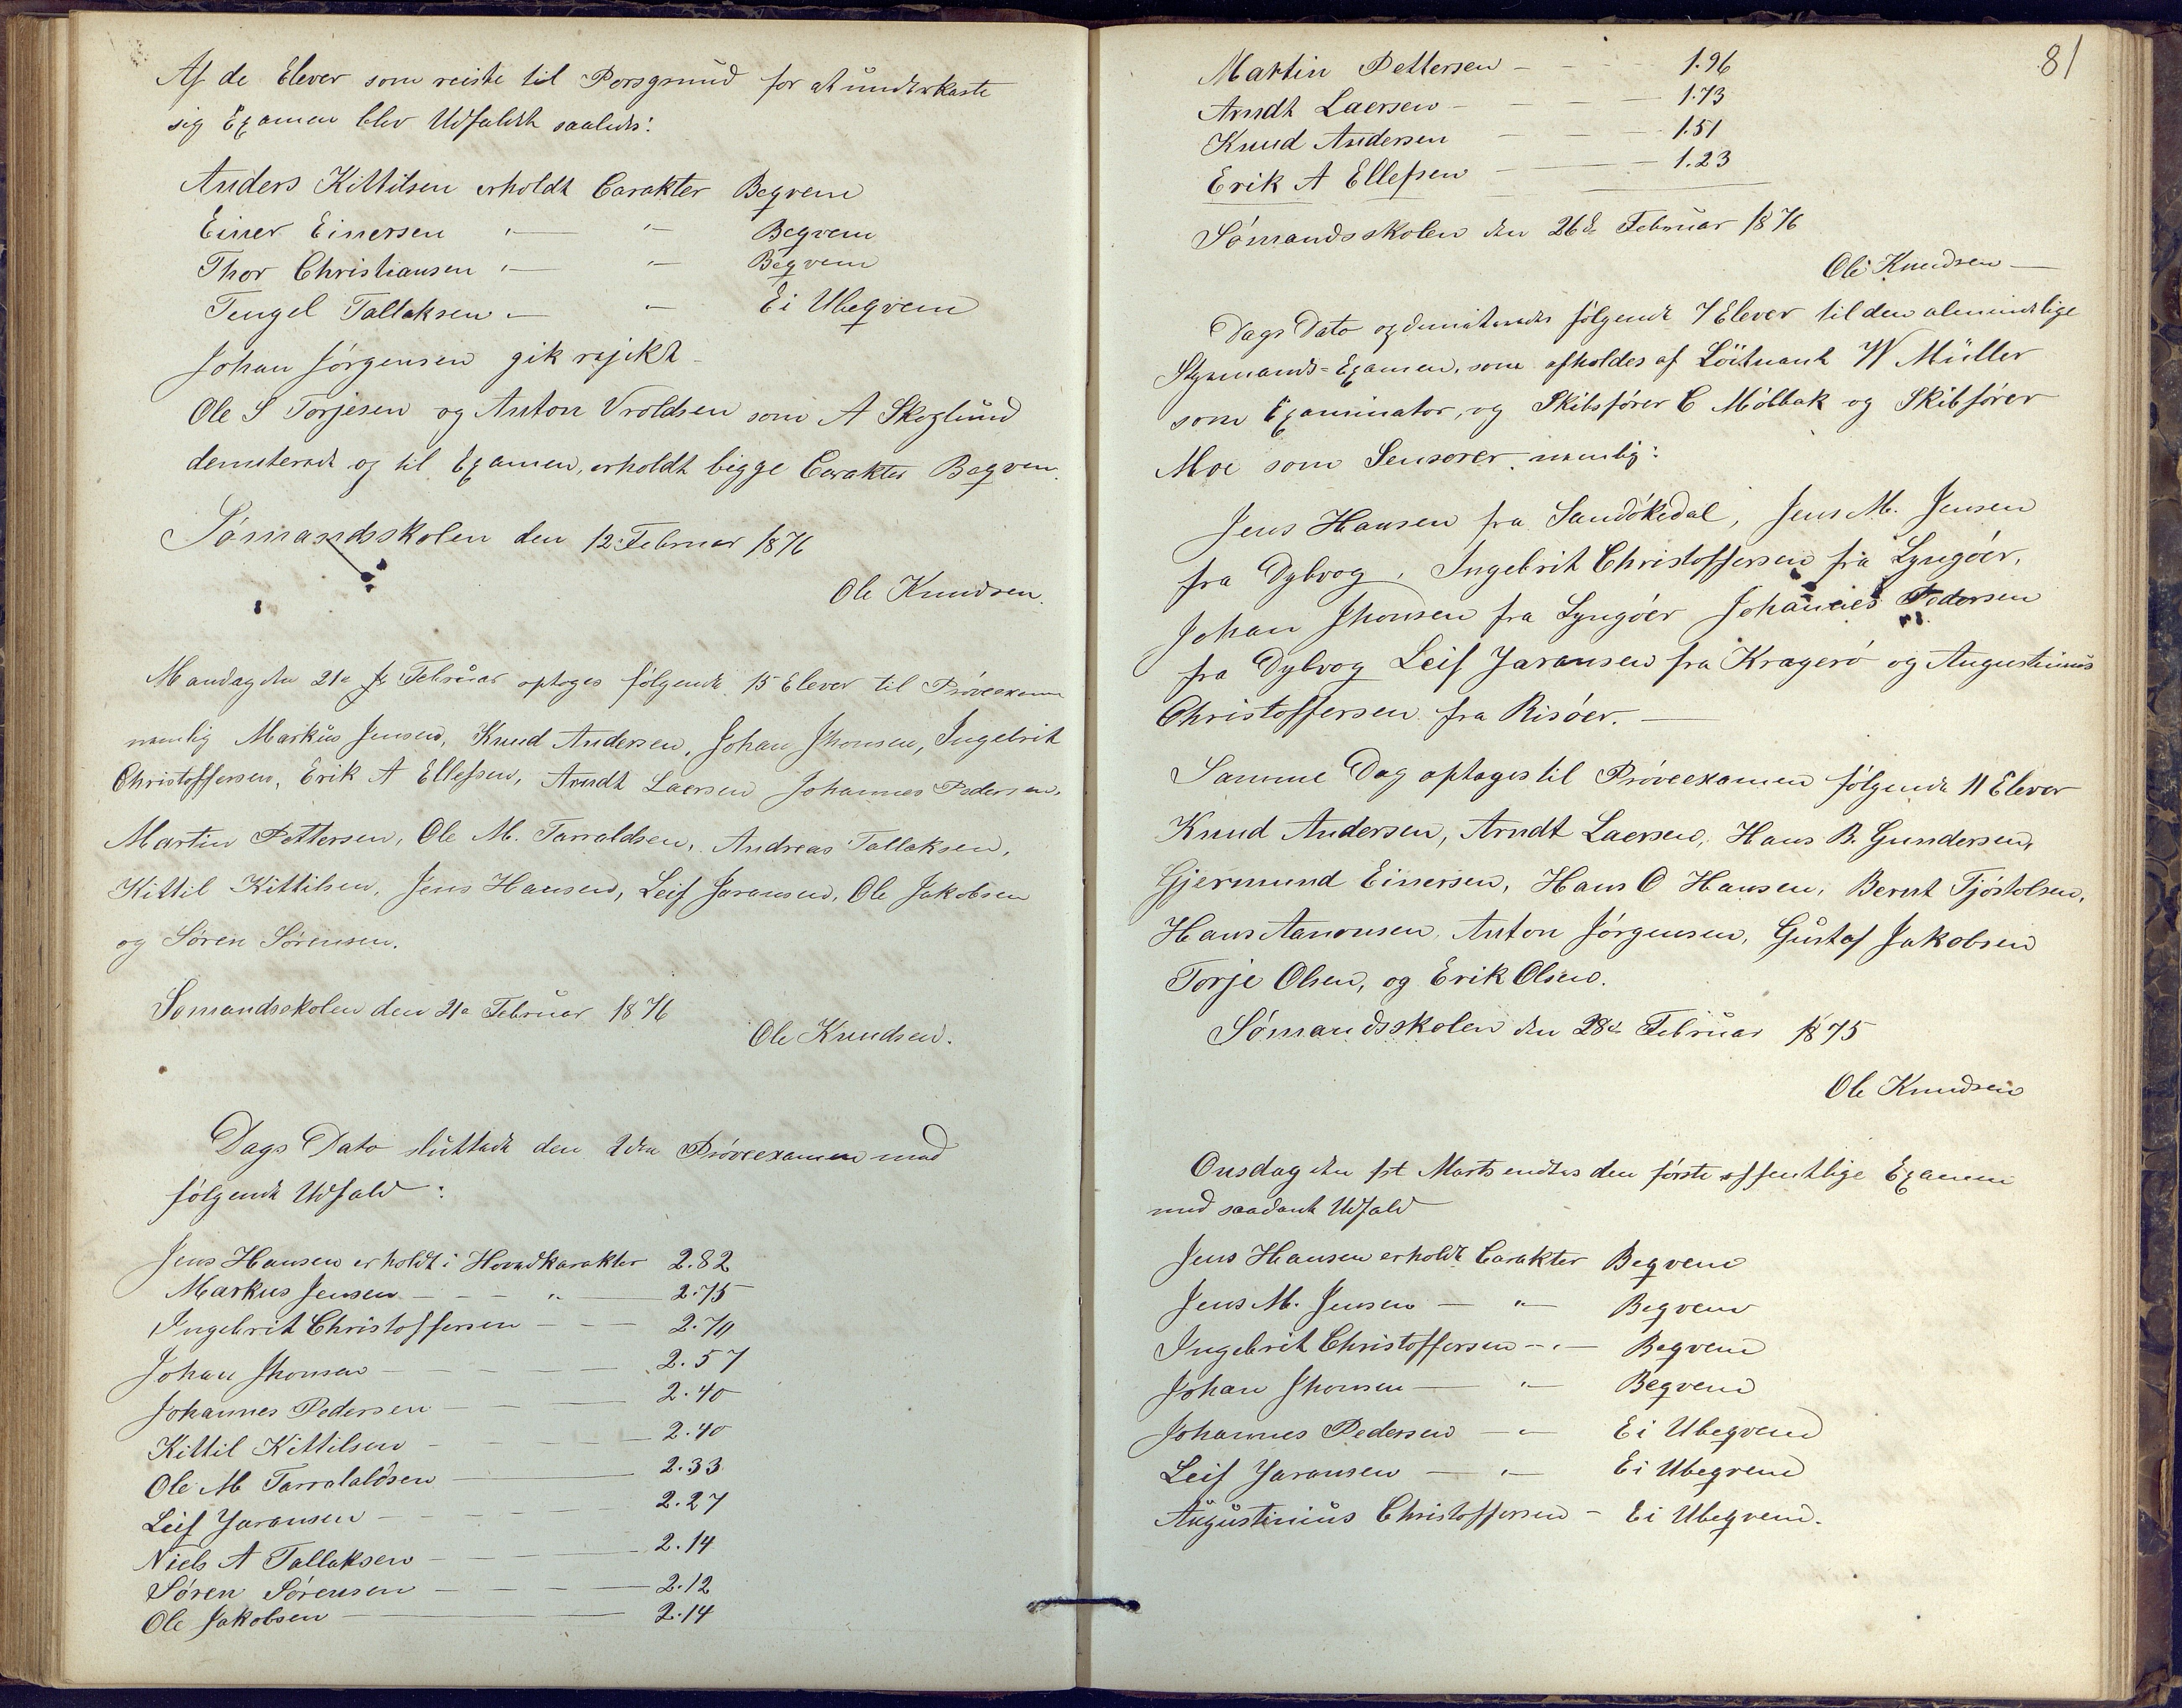 Af de Elever som reiste til Porsgrund for at underkaste
sig Examen blev Udfaldet saaledes:
Anders Kittilsen erholdt Carakter Beqvem
Einer Einersen " — " — Beqvem
Thor Christiansen " — " — Beqvem
Tengel Tallaksen " — " — Ei Ubeqvem
Johan Jörgensen gik rejekt
Ole S Torjesen og Anton Vroldsen som A Skoglund
demiterede og til Examen, erholdt bigge Carakter Beqvem.
Sömandsskolen den 12: Februar 1876
Ole Knudsen.
Mandag den 21de Februar optoges följende 15 Elever til Pröveexamen
nemlig Markus Jensen, Knud Andersen, Johan Jhonsen, Ingebrit
Christoffersen, Erik A Ellefsen, Arndt Laersen Johannes Pedersen,
Martin Pettersen, Ole M. Tarraldsen, Andreas Tallaksen,
Kittil Kittilsen, Jens Hansen, Leif Jaransen, Ole Jakobsen
og Sören Sörensen.
Sömandsskolen den 21de Februar 1876
Ole Knudsen.
Dags Dato sluttede den 2den Pröveexamen med
fölgende Udfald:
Jens Hansen erholdt i Hovedkarakter 2.82
Markus Jensen — " — 2.75
Ingebrit Christoffersen — 2.70
Johan Jhonsen — 2.57
Johannes Pedersen — 2.40
Kittil Kittilsen — 2.40
Ole M Tarralaldsen — 2.33
Leif Jaransen — 2.27
Niels A Tallaksen — 2.14
Sören Sörensen — 2.12
Ole Jakobsen — 2.14
81
Martin Pettersen — 1.96
Arndt Laersen — 1.73
Knud Andersen — 1.51
Erik A Ellefsen — 1.23
Sömandsskolen den 26de Februar 1876
Ole Knudsen —
Dags Dato følgende 7 Elever til den almindelige
Styrmands-Examen, som afholdes af Löitnant W Müller
som Examinator, og Skibsförer C Möllbak og Skibförer
Moe som Sensorer, nemlig:
Jens Hansen fra Sandökedal, Jens M. Jensen
fra Dybvog, Ingebrit Christoffersen fra Lyngöer,
Johan Jhonsen fra Lyngöer Johannes Pedersen
fra Dybvog Leif Jaransen fra Kragerö og Augustinius
Christoffersen fra Risöer. —
Samme Dag optoges til Pröveexamen fölgende 11 Elever
Knud Andersen, Arndt Laersen, Hans B. Gundersen,
Gjermund Einersen, Hans O Hansen, Bernt Tjöstolsen,
Hans Aanonsen, Anton Jörgensen, Gustaf Jakobsen
Torje Olsen, og Erik Olsen.
Sömandsskolen den 28de Februar 1875
Ole Knudsen
Onsdag den 1st Marts endtes den förste offentlige Examen
med saadant Udfald
Jens Hansen erholdt Carakter Beqvem
Jens M. Jensen — " — Beqvem
Ingebrit Christoffersen — " — Beqvem
Johan Jhonsen — " — Beqvem
Johannes Pedersen — " — Ei Ubeqvem
Leif Jaransen — " — Ei Ubeqvem
Augustinius Christoffersen — Ei Ubeqvem.